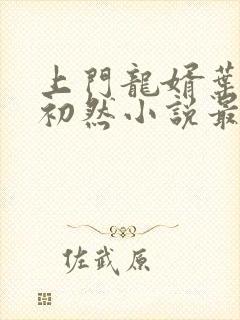 上門龍婿葉
初然小說最
佐武原